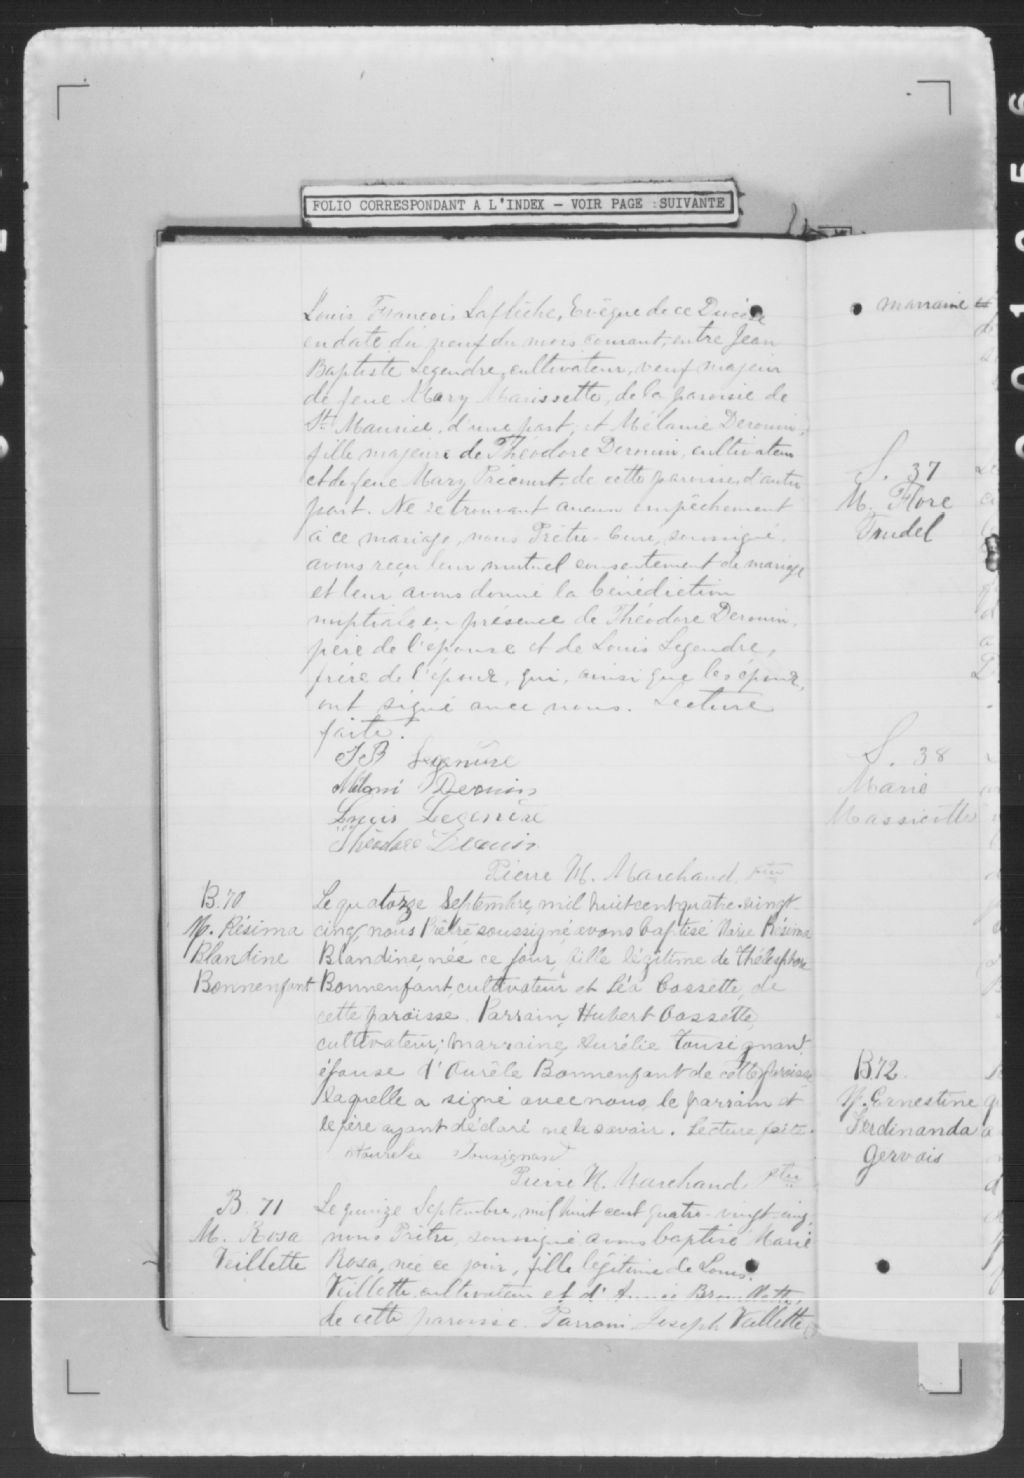 FOLIO CORRESPONDANT A L'INDEX — VOIR PAGE SUIVANTE
Louis François Laflèche, Evêque de ce Diocèse
en date du neuf du mois courant, entre Jean
Baptiste Legendre, cultivateur, veuf majeur
de feue Mary Marissette, de la paroisse de
St Maurice, d'une part, et Mélanie Derouin,
fille majeure de Théodore Derouin, cultivateur
et de feue Mary Précourt de cette paroisse, d'autre
part. Ne se trouvant aucun empêchement
à ce mariage, nous Prêtre-Curé, soussigné,
avons reçu leur mutuel consentement de mariage
et leur avons donné la bénédiction
nuptiale en présence de Théodore Derouin,
père de l'épouse et de Louis Legendre,
frère de l'époux, qui, ainsi que les époux,
ont signé avec nous. Lecture
faite.
J B
Derouin
Louis
Théodore
Pierre H. Marchand, Ptre
B.70
M. Résima
Blandine
Bonnenfant
Le quatorze Septembre, mil huit cent quatre-vingt-
cinq, nous Prêtre soussigné, avons baptisé Marie Résima
Blandine, née ce jour, fille légitime de Thélesphore
Bonnenfant, cultivateur et Léa Cossette, de
cette paroisse. Parrain, Hubert Cossette,
cultivateur; marraine, Aurélie Tousignant,
épouse d'Aurèle Bonnenfant de cette paroisse
laquelle a signé avec nous, le parrain et
le père ayant déclaré ne le savoir. Lecture faite.
Aurelie Tousignant
Pierre H. Marchand, Ptre
B. 71
M. Rosa
Veillette
Le quinze Septembre, mil huit cent quatre-vingt-cinq,
nous Prêtre, soussigné avons baptisé Marie
Rosa, née ce jour, fille légitime de Louis
Veillette, cultivateur et d'Annie
de cette paroisse. Parrain Joseph Veillette
marraine
S. 37
M. Flore
Trudel
S. 38
Marie
Massicotte
B.72.
M. Ernestine
Ferdinanda
Gervais